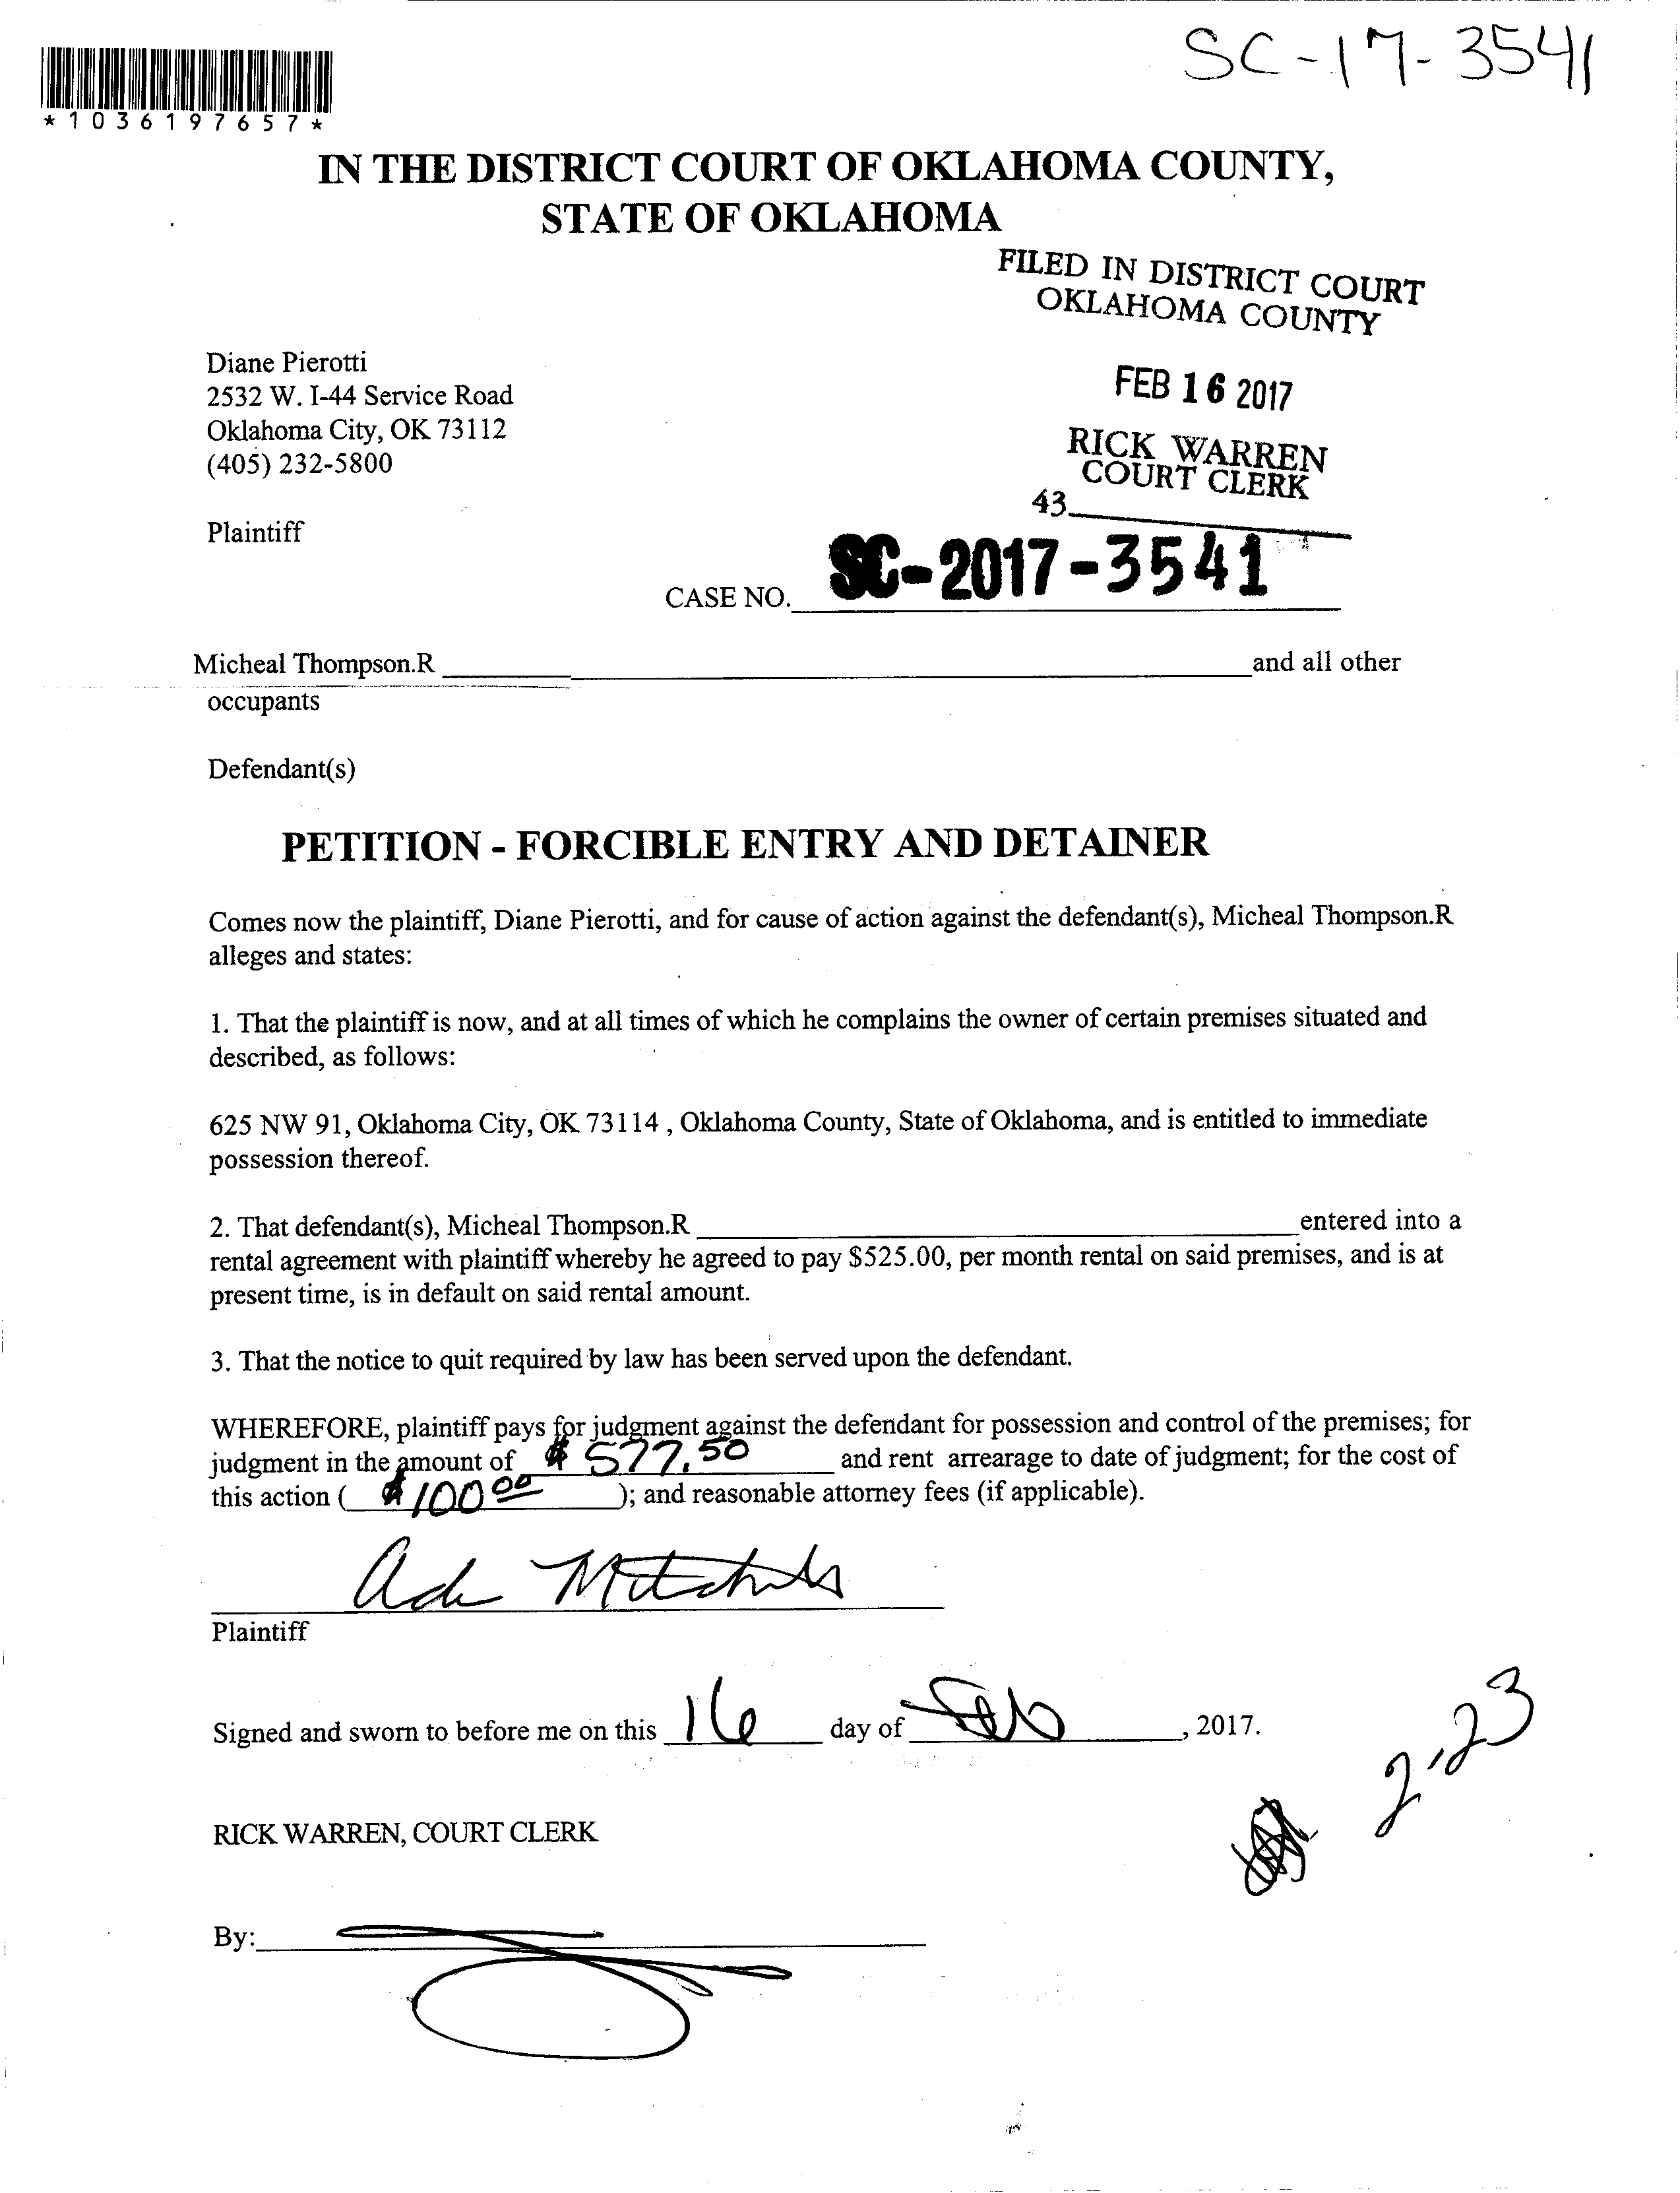 SC-17-3541
*1036197657*
IN THE DISTRICT COURT OF OKLAHOMA COUNTY,
STATE OF OKLAHOMA
FILED IN DISTRICT COURT
OKLAHOMA COUNTY
FEB 16 2017
RICK WARREN
COURT CLERK
43
Diane Pierotti
2532 W. I-44 Service Road
Oklahoma City, OK 73112
(405) 232-5800
Plaintiff
CASE NO. SC-2017-3541
Micheal Thompson.R and all other
occupants
Defendant(s)
PETITION - FORCIBLE ENTRY AND DETAINER
Comes now the plaintiff, Diane Pierotti, and for cause of action against the defendant(s), Micheal Thompson.R
alleges and states:
1. That the plaintiff is now, and at all times of which he complains the owner of certain premises situated and
described, as follows:
625 NW 91, Oklahoma City, OK 73114 , Oklahoma County, State of Oklahoma, and is entitled to immediate
possession thereof.
2. That defendant(s), Micheal Thompson.R entered into a
rental agreement with plaintiff whereby he agreed to pay $525.00, per month rental on said premises, and is at
present time, is in default on said rental amount.
3. That the notice to quit required by law has been served upon the defendant.
WHEREFORE, plaintiff pays for judgment against the defendant for possession and control of the premises; for
judgment in the amount of $ 577.50 and rent arrearage to date of judgment; for the cost of
this action ( $100 00 ); and reasonable attorney fees (if applicable).
Plaintiff
Signed and sworn to before me on this 16 day of Feb , 2017.
2,23
RICK WARREN, COURT CLERK
By: